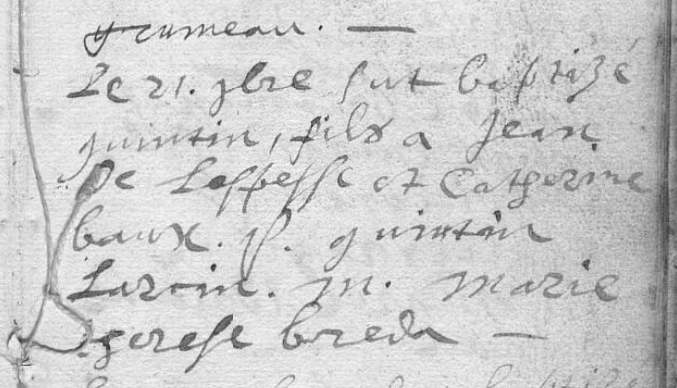 grumeau. —
Le 21. 9bre fut baptizé
quintin, fils a Jean
De Lespesse et Catherine
baux. p. quintin
Larcin. m. Marie
therese breda —